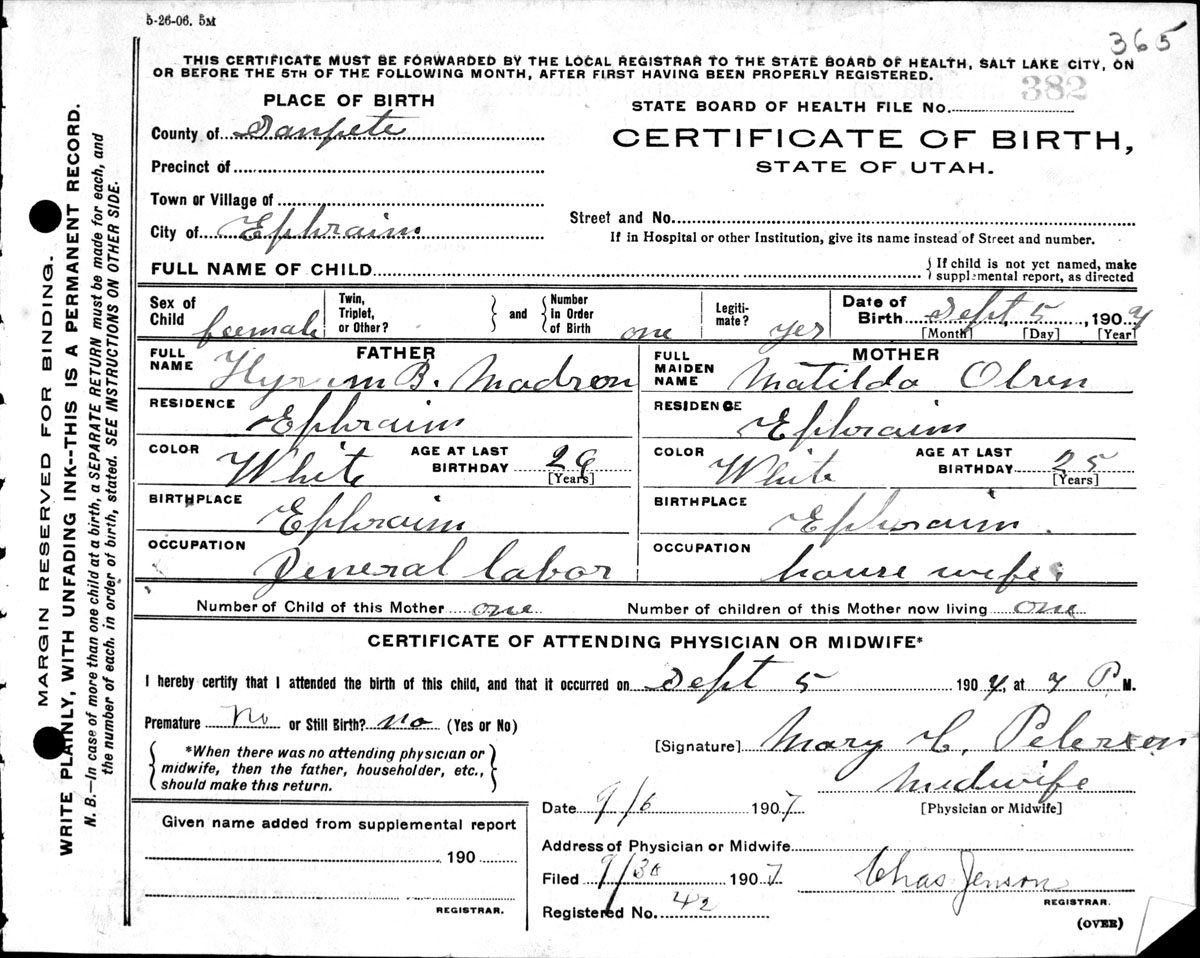 5-26-06. 5M
365
THIS CERTIFICATE MUST BE FORWARDED BY THE LOCAL REGISTRAR TO THE STATE BOARD OF HEALTH, SALT LAKE CITY, ON
OR BEFORE THE 5TH OF THE FOLLOWING MONTH, AFTER FIRST HAVING BEEN PROPERLY REGISTERED.
PLACE OF BIRTH
STATE BOARD OF HEALTH FILE No. 382
County of Sanpete
CERTIFICATE OF BIRTH,
STATE OF UTAH.
Precinct of
Town or Village of
Street and No.
City of Ephraim
If in Hospital or other Institution, give its name instead of Street and number.
FULL NAME OF CHILD
{ If child is not yet named, make
supplemental report, as directed
Sex of Child female
Twin, Triplet, or Other? } and { Number In Order of Birth one
Legiti-mate? yes
Date of Birth Sept, 5, 1907
[Month] [Day] [Year]
FATHER
FULL NAME Hyrum B. Madsen
MOTHER
FULL MAIDEN NAME Matilda Olsen
RESIDENCE Ephraim
RESIDENCE Ephraim
COLOR White AGE AT LAST BIRTHDAY 29 [Years]
COLOR White AGE AT LAST BIRTHDAY 25 [Years]
BIRTHPLACE Ephraim
BIRTHPLACE Ephraim.
OCCUPATION General labor
OCCUPATION house wife
Number of Child of this Mother one Number of children of this Mother now living one
CERTIFICATE OF ATTENDING PHYSICIAN OR MIDWIFE*
I hereby certify that I attended the birth of this child, and that it occurred on Sept 5 1907, at 7 P M.
Premature No or Still Birth? no (Yes or No)
[Signature] Mary C. Peterson
Midwife
[Physician or Midwife]
{ *When there was no attending physician or
midwife, then the father, householder, etc.,
should make this return. }
Date 9/6 1907
Given name added from supplemental report
190
REGISTRAR.
Address of Physician or Midwife
Filed 9/30 1907 Chas Jenson
REGISTRAR.
Registered No. 42
(OVER)
MARGIN RESERVED FOR BINDING.
WRITE PLAINLY, WITH UNFADING INK--THIS IS A PERMANENT RECORD.
N. B.—In case of more than one child at a birth, a SEPARATE RETURN must be made for each, and
the number of each, in order of birth, stated. SEE INSTRUCTIONS ON OTHER SIDE.